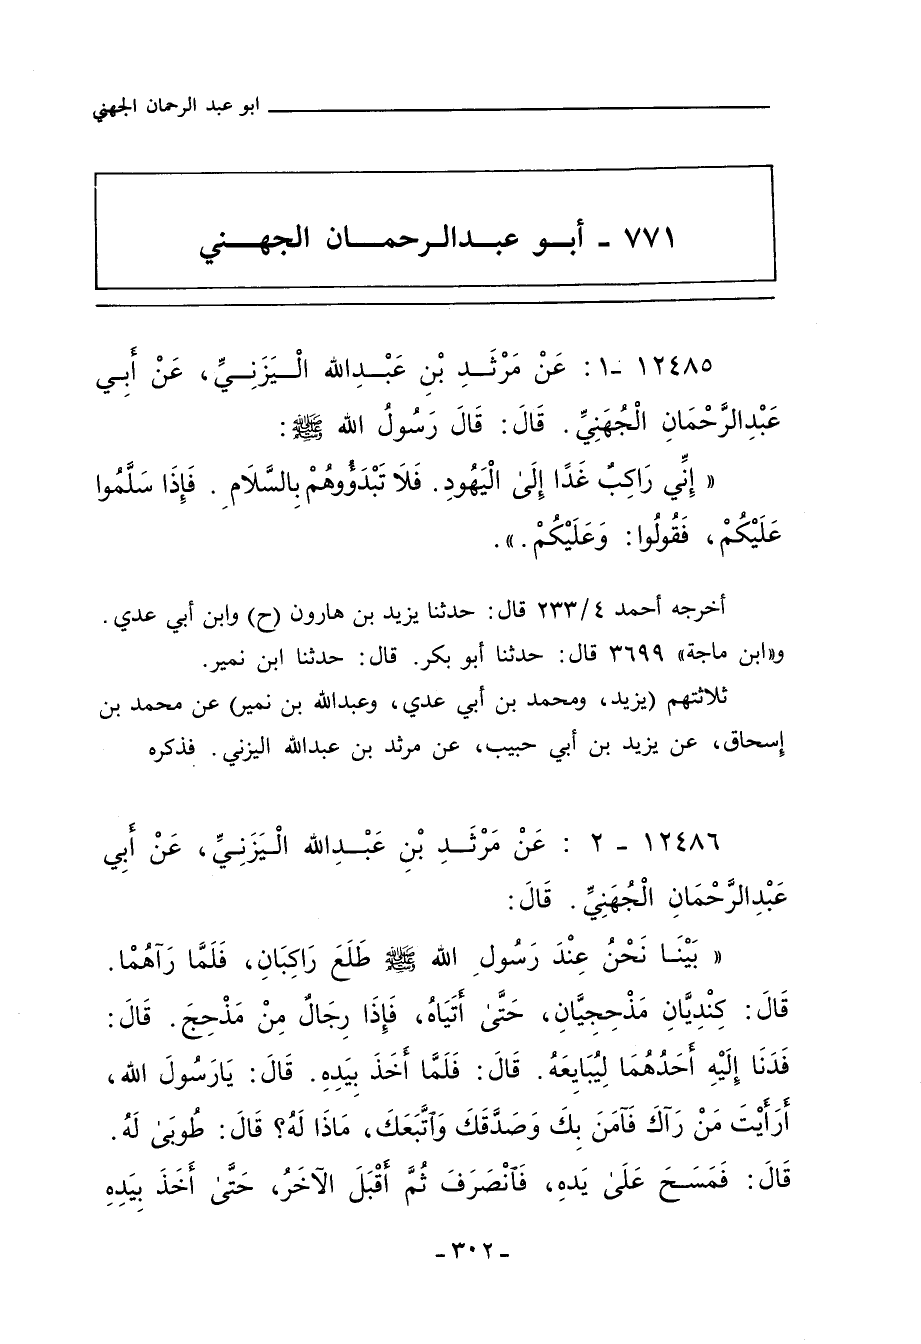 ابو عبد الرحمان الجهني
٧٧١ - أبو عبدالرحمان الجهني
١٢٤٨٥ -١: عَنْ مَرْثَدِ بْنِ عَبْدِالله الْيَزَنِيِّ، عَنْ أَبِي
عَبْدِالرَّحْمَانِ الْجُهَنِيِّ. قَالَ: قَالَ رَسُولُ الله ﷺ:
« إِنِّي رَاكِبٌ غَدًا إِلَىٰ الْيَهُودِ. فَلَا تَبْدَؤُوهُمْ بِالسَّلَامِ. فَإِذَا سَلَّمُوا
عَلَيْكُمْ، فَقُولُوا: وَعَلَيْكُمْ.».
أخرجه أحمد ٢٣٣/٤ قال: حدثنا يزيد بن هارون (ح) وابن أبي عدي.
و«ابن ماجة» ٣٦٩٩ قال: حدثنا أبو بكر. قال: حدثنا ابن نمير.
ثلاثتهم (يزيد، ومحمد بن أبي عدي، وعبدالله بن نمير) عن محمد بن
إسحاق، عن يزيد بن أبي حبيب، عن مرثد بن عبدالله اليزني. فذكره
١٢٤٨٦ - ٢ : عَنْ مَرْثَدِ بْنِ عَبْدِالله الْيَزَنِيِّ، عَنْ أَبِي
عَبْدِالرَّحْمَانِ الْجُهَنِيِّ. قَالَ:
« بَيْنَا نَحْنُ عِنْدَ رَسُولِ الله ﷺ طَلَعَ رَاكِبَانِ، فَلَمَّا رَآهُمْا.
قَالَ: كِنْدِيَّانِ مَذْحِجِيَّانِ، حَتَّىٰ أَتَيَاهُ، فَإِذَا رِجَالٌ مِنْ مَذْحِجَ. قَالَ:
فَدَنَا إِلَيْهِ أَحَدُهُمَا لِيُبَايِعَهُ. قَالَ: فَلَمَّا أَخَذَ بِيَدِهِ. قَالَ: يَارَسُولَ الله،
أَرَأَيْتَ مَنْ رَآكَ فَآمَنَ بِكَ وَصَدَّقَكَ وَٱتَّبَعَكَ، مَاذَا لَهُ؟ قَالَ: طُوبَىٰ لَهُ.
قَالَ: فَمَسَحَ عَلَىٰ يَدِهِ، فَٱنْصَرَفَ ثُمَّ أَقْبَلَ الآخَرُ، حَتَّىٰ أَخَذَ بِيَدِهِ
- ٣٠٢ -